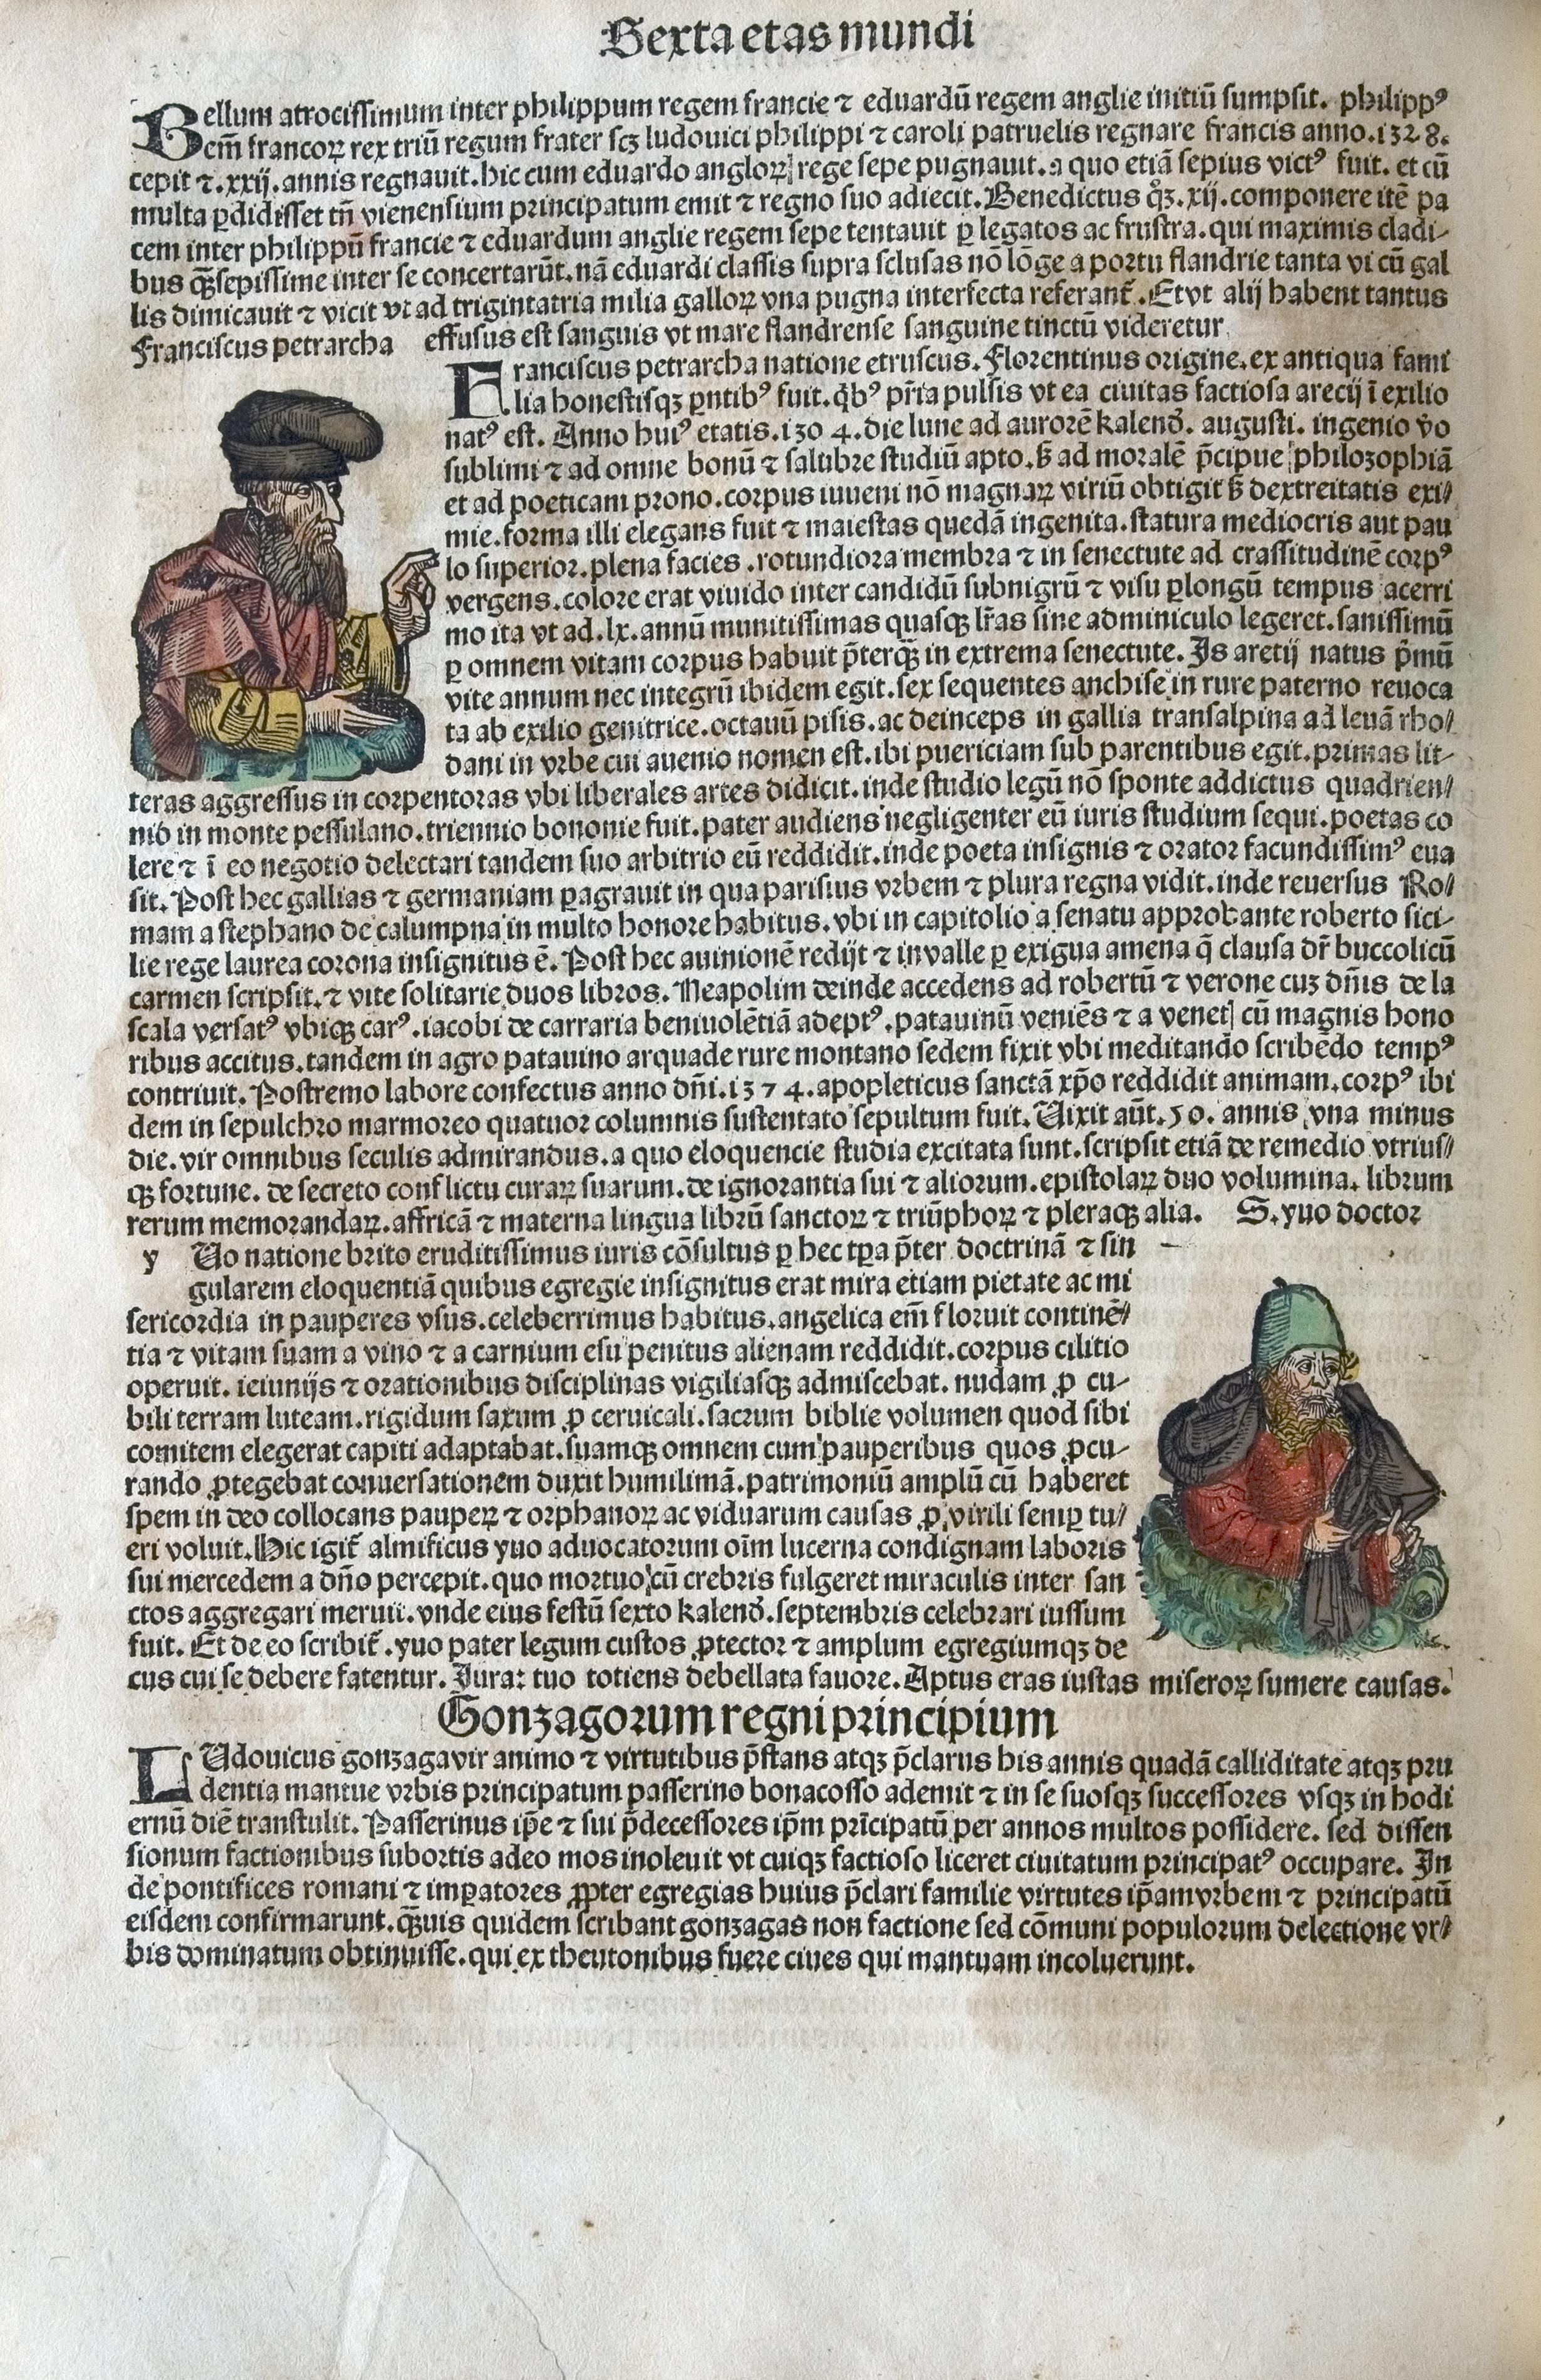 Sexta etas mundi
Bellum atrocissimum inter philippum regem francie ⁊ eduardū regem anglie initiū sumpsit. philippꝰ
em̄ francoꝝ rex triū regum frater scꝫ ludouici philippi ⁊ caroli patruelis regnare francis anno.1328.
cepit ⁊.xxij.annis regnauit.hic cum eduardo angloꝝ rege sepe pugnauit.a quo etiā sepius victꝰ fuit. et cū
multa ꝑdidisset tn̄ vienensium principatum emit ⁊ regno suo adiecit.Benedictus qͦꝫ.xij.componere itē pa
cem inter philippū francie ⁊ eduardum anglie regem sepe tentauit ꝑ legatos ac frustra.qui maximis cladi-
bus qꝫ̄sepissime inter se concertarūt.nā eduardi classis supra sclusas nō lōge a portu flandrie tanta vi cū gal
lis dimicauit ⁊ vicit vt ad trigintatria milia galloꝝ vna pugna interfecta referant̄.Et vt alij habent tantus
effusus est sanguis vt mare flandrense sanguine tinctū videretur
Franciscus petrarcha
Franciscus petrarcha natione etruscus.Florentinus origine.ex antiqua fami
lia honestisqꝫ pn̄tibꝰ fuit.qͥbꝰ pr̄ia pulsis vt ea ciuitas factiosa arecij ī exilio
natꝰ est. Anno huiꝰ etatis.1304.die lune ad aurorē kalend̄. augusti. ingenio v̄o
sublimi ⁊ ad omne bonū ⁊ salubre studiū apto.sꝫ ad moralē p̄cipue philozophiā
et ad poeticam prono.corpus iuueni nō magnaꝝ viriū obtigit sꝫ dextreitatis exi-
mie.forma illi elegans fuit ⁊ maiestas quedā ingenita.statura mediocris aut pau
lo superior.plena facies.rotundiora membra ⁊ in senectute ad crassitudinē corpꝰ
vergens.colore erat viuido inter candidū subnigrū ⁊ visu ꝑlongū tempus acerri
mo ita vt ad.lx.annū munitissimas quasqꝫ lr̄as sine adminiculo legeret.sanissimū
ꝑ omnem vitam corpus habuit p̄terqꝫ̄ in extrema senectute.Is aretij natus p̄mū
vite annum nec integrū ibidem egit.sex sequentes anchise in rure paterno reuoca
ta ab exilio genitrice.octauū pisis.ac deinceps in gallia transalpina ad leuā rho-
dani in vrbe cui auenio nomen est.ibi puericiam sub parentibus egit.primas lit-
teras aggressus in corpentoras vbi liberales artes didicit.inde studio legū nō sponte addictus quadrien-
nio in monte pessulano.triennio bononie fuit.pater audiens negligenter eū iuris studium sequi.poetas co
lere ⁊ ī eo negotio delectari tandem suo arbitrio eū reddidit.inde poeta insignis ⁊ orator facundissimꝰ eua
sit.Post hec gallias ⁊ germaniam ꝑagrauit in qua parisius vrbem ⁊ plura regna vidit.inde reuersus Ro-
mam a stephano de calumpna in multo honore habitus.vbi in capitolio a senatu approbante roberto sici-
lie rege laurea corona insignitus ē. Post hec auinionē redijt ⁊ in valle ꝑ exigua amena q̄ clausa dr̄ buccolicū
carmen scripsit.⁊ vite solitarie duos libros. Neapolim deinde accedens ad robertū ⁊ verone cuz dn̄is de la
scala versatꝰ vbiqꝫ carꝰ.iacobi de carraria beniuolētiā adeptꝰ.patauinū veniēs ⁊ a venet cū magnis hono
ribus accitus.tandem in agro patauino arquade rure montano sedem fixit vbi meditando scribēdo tempꝰ
contriuit. Postremo labore confectus anno dn̄i.1374.apopleticus sanctā xp̄o reddidit animam.corpꝰ ibi
dem in sepulchro marmoreo quatuor columnis sustentato sepultum fuit. Vixit aūt.70. annis vna minus
die.vir omnibus seculis admirandus.a quo eloquencie studia excitata sunt.scripsit etiā de remedio vtrius-
qꝫ fortune. de secreto conflictu curaꝝ suarum.de ignorantia sui ⁊ aliorum.epistolaꝝ duo volumina. librum
rerum memorandaꝝ.affricā ⁊ materna lingua librū sanctoꝝ ⁊ triūphoꝝ ⁊ pleraqꝫ alia. S.yuo doctor
y Uo natione brito eruditissimus iuris cōsultus ꝑ hec tp̄a p̄ter doctrinā ⁊ sin
gularem eloquentiā quibus egregie insignitus erat mira etiam pietate ac mi
sericordia in pauperes vsus.celeberrimus habitus.angelica em̄ floruit continē-
tia ⁊ vitam suam a vino ⁊ a carnium esu penitus alienam reddidit.corpus cilitio
operuit. ieiunijs ⁊ orationibus disciplinas vigiliasqꝫ admiscebat. nudam ꝓ cu-
bili terram luteam.rigidum saxum ꝓ ceruicali.sacrum biblie volumen quod sibi
comitem elegerat capiti adaptabat.suamqꝫ omnem cum pauperibus quos ꝓcu-
rando ꝓtegebat conuersationem duxit humilimā.patrimoniū amplū cū haberet
spem in deo collocans paupeꝝ ⁊ orphanoꝝ ac viduarum causas ꝓ virili semꝑ tu-
eri voluit.Hic igit̄ almificus yuo aduocatorum oīm lucerna condignam laboris
sui mercedem a dn̄o percepit.quo mortuo cū crebris fulgeret miraculis inter san
ctos aggregari meruit.vnde eius festū sexto kalend̄.septembris celebrari iussum
fuit. Et de eo scribit̄.yuo pater legum custos ꝓtector ⁊ amplum egregiumqꝫ de
cus cui se debere fatentur. Iura: tuo totiens debellata fauore. Aptus eras iustas miseroꝝ sumere causas.
Gonzagorum regni principium
LUdouicus gonzaga vir animo ⁊ virtutibus p̄stans atqꝫ p̄clarus his annis quadā calliditate atqꝫ pru
dentia mantue vrbis principatum passerino bonacosso ademit ⁊ in se suosqꝫ successores vsqꝫ in hodi
ernū diē transtulit. Passerinus ip̄e ⁊ sui p̄decessores ip̄m prīcipatū per annos multos possidere. sed dissen
sionum factionibus subortis adeo mos inoleuit vt cuiqꝫ factioso liceret ciuitatum principatꝰ occupare. In
de pontifices romani ⁊ imꝑatores ꝓpter egregias huius p̄clari familie virtutes ip̄am vrbem ⁊ principatū
eisdem confirmarunt.qꝫ̄uis quidem scribant gonzagas non factione sed cōmuni populorum delectione vr-
bis dominatum obtinuisse.qui ex theutonibus fuere ciues qui mantuam incoluerunt.